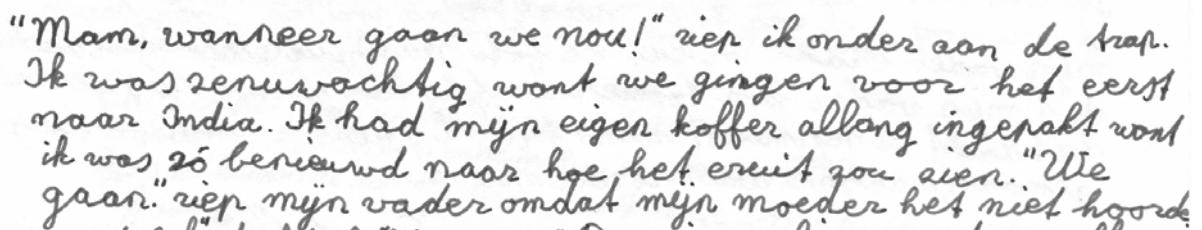 "Mam, wanneer gaan we nou!" riep ik onder aan de trap.
Ik was zenuwachtig want we gingen voor het eerst
naar India. Ik had mijn eigen koffer allang ingepakt want
ik was zó benieuwd naar hoe het eruit zou zien. "We
gaan." riep mijn vader omdat mijn moeder het niet hoorde